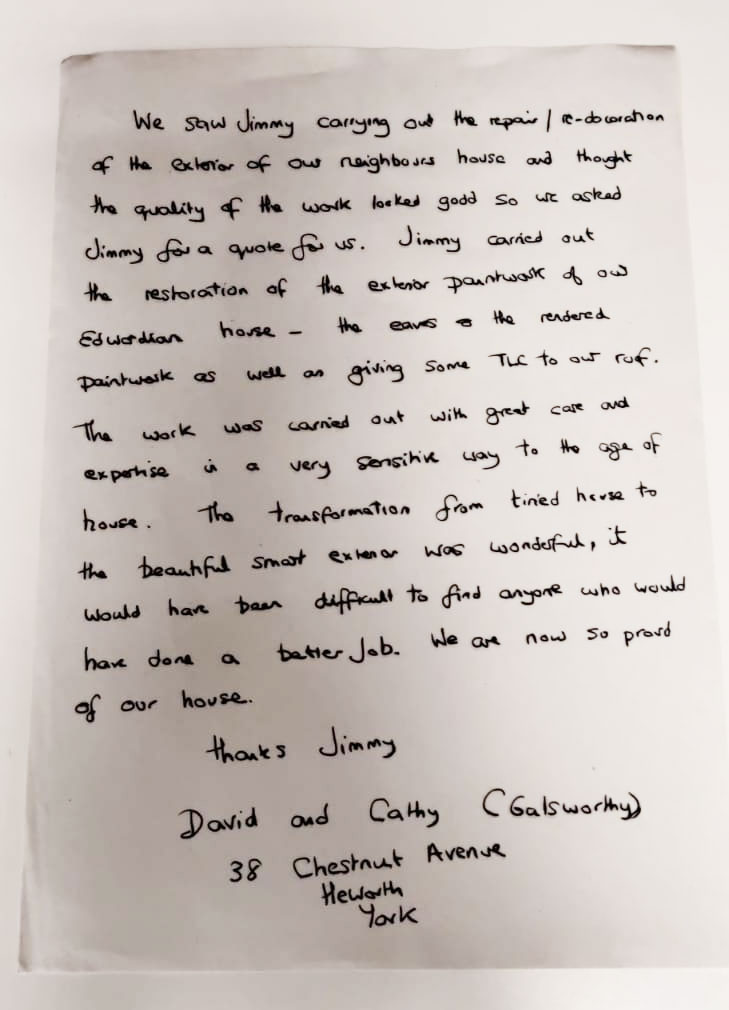 We saw Jimmy carrying out the repair / re-decoration
of the exterior of our neighbours house and thought
the quality of the work looked good so we asked
Jimmy for a quote for us. Jimmy carried out
the restoration of the exterior paintwork of our
Edwardian house – the eaves & the rendered
paintwork as well as giving some TLC to our roof.
The work was carried out with great care and
expertise in a very sensitive way to the age of
house. The transformation from tired house to
the beautiful smart exterior was wonderful, it
would have been difficult to find anyone who would
have done a better Job. We are now so proud
of our house.
thanks Jimmy
David and Cathy (Galsworthy)
38 Chestnut Avenue
Heworth
York